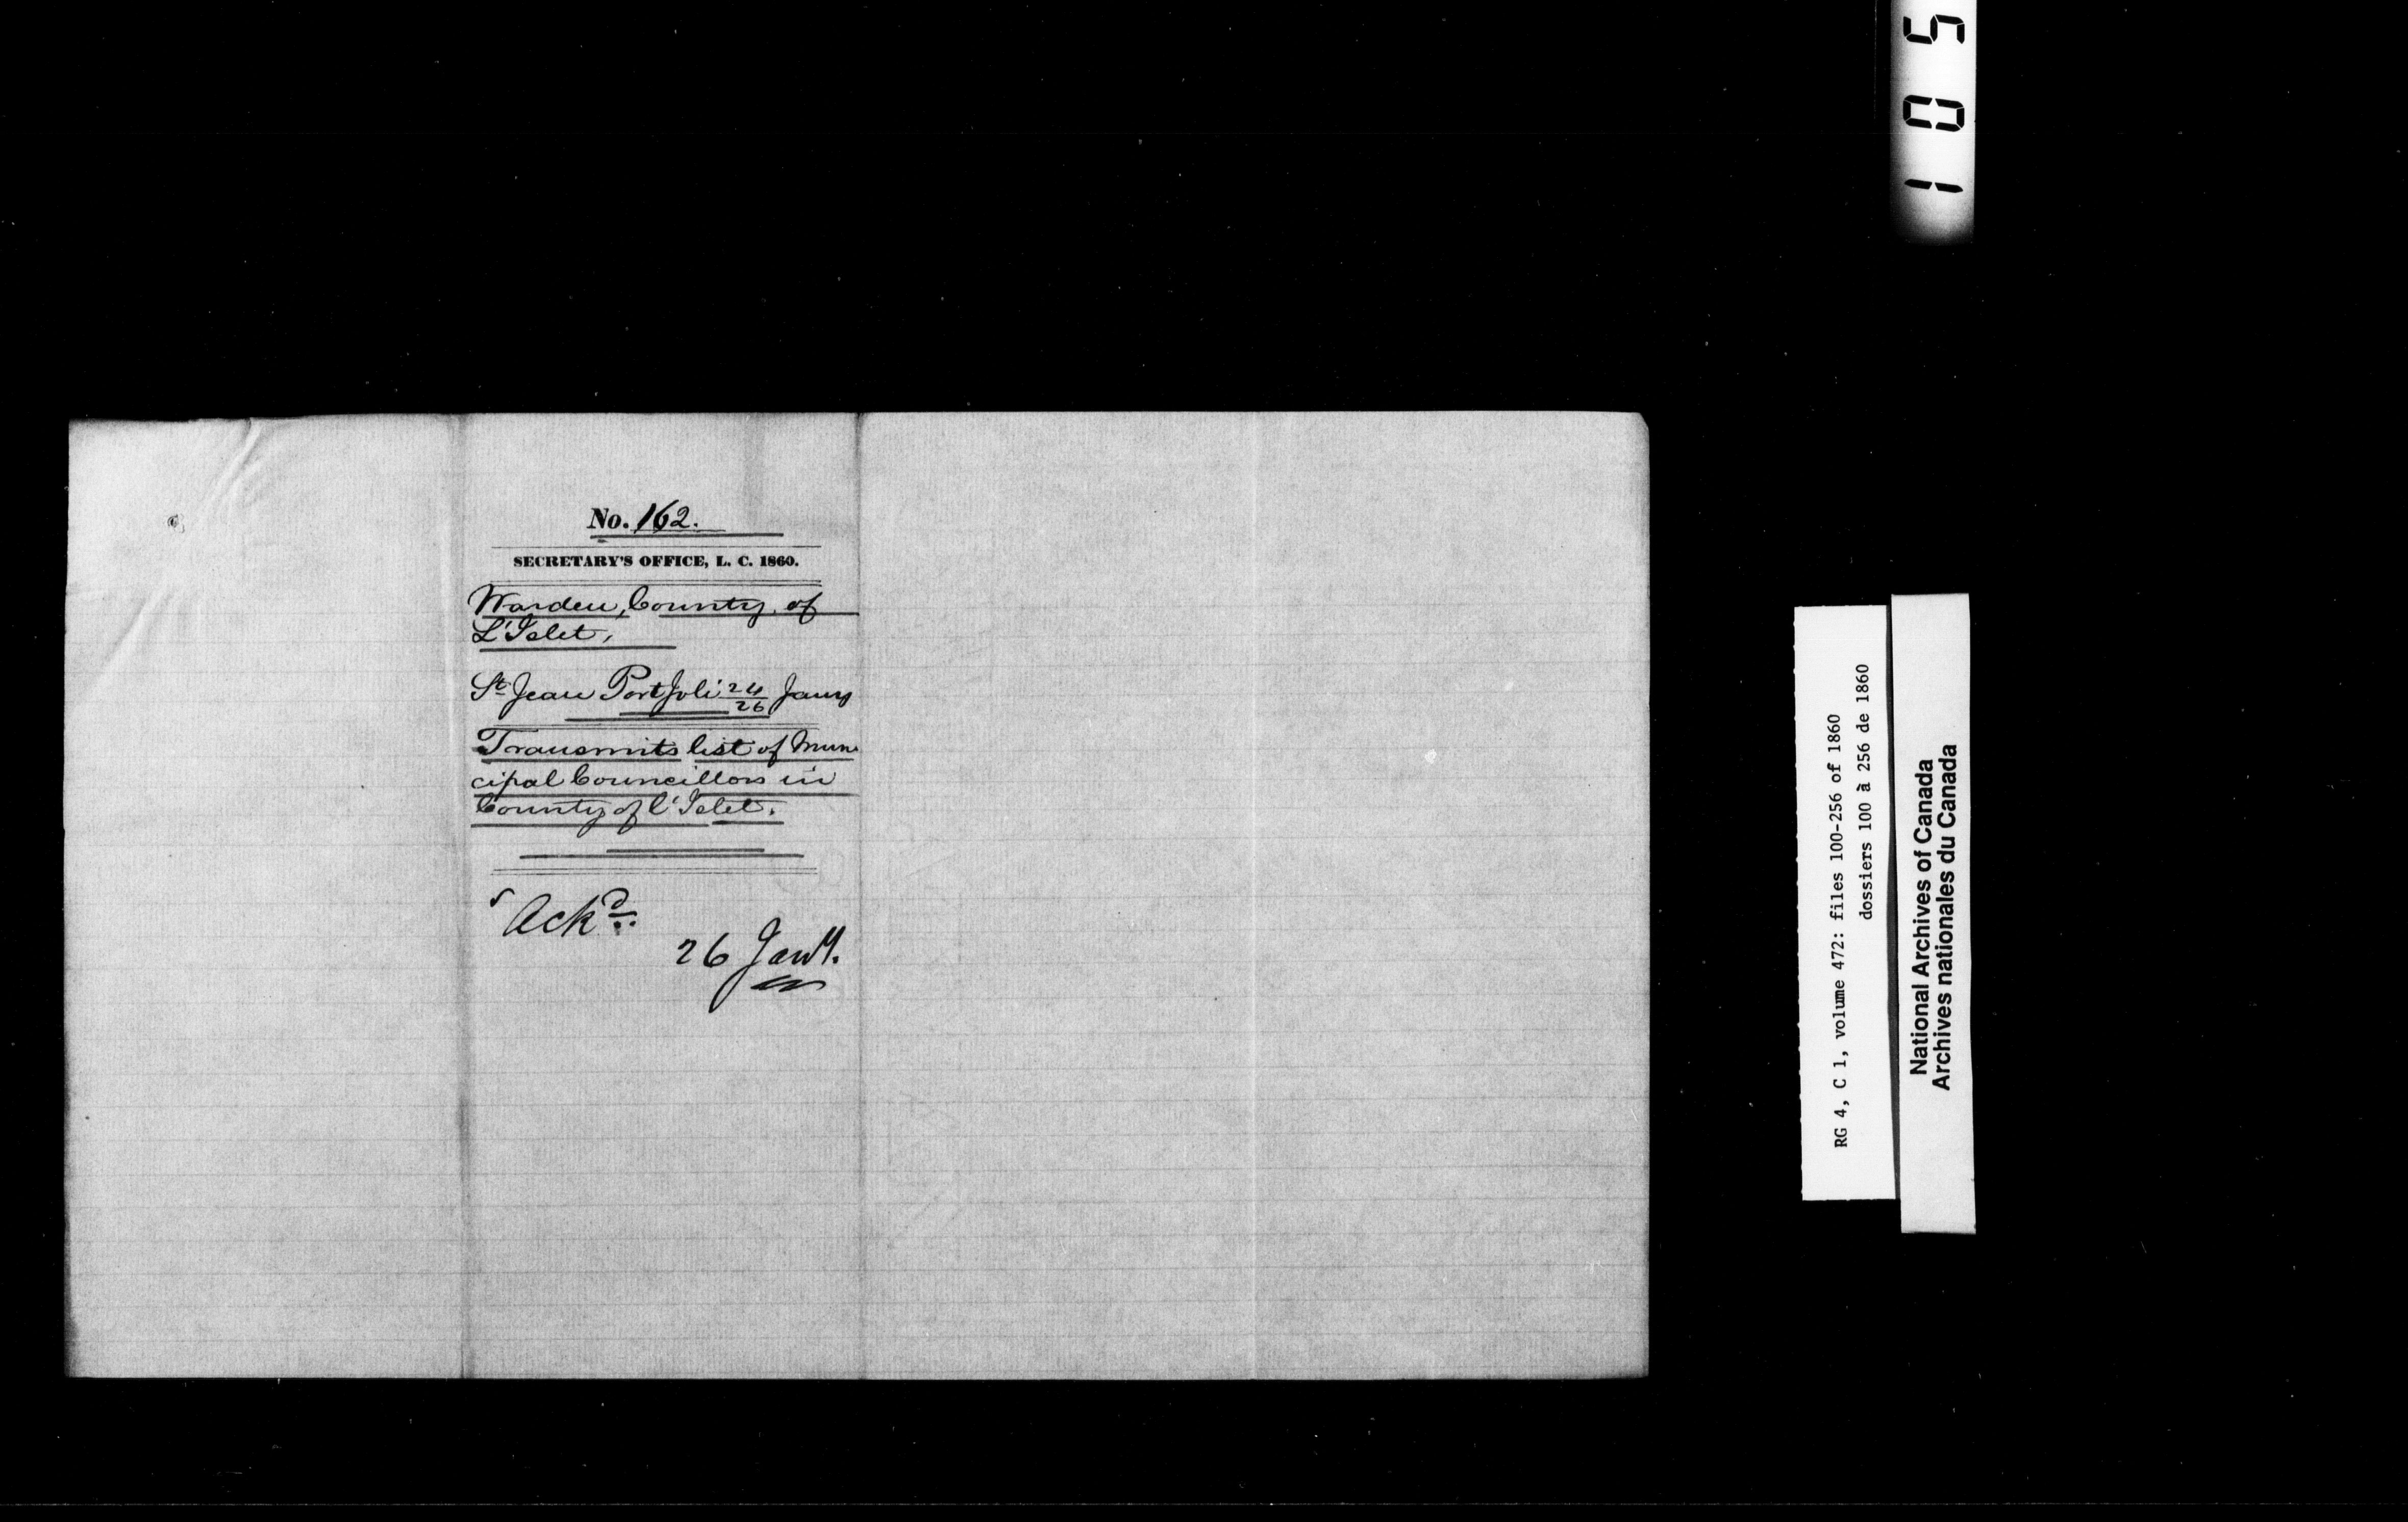 No. 162.
SECRETARY'S OFFICE, L. C. 1860.
Warden, County of
L'Islet,
St Jean Port Joli 24/26 Jany
Transmits list of Muni
cipal Councillors in
County of l'Islet.
Ackd
26 Jany.
105
RG 4, C 1, volume 472: files 100-256 of 1860
dossiers 100 à 256 de 1860
National Archives of Canada
Archives nationales du Canada